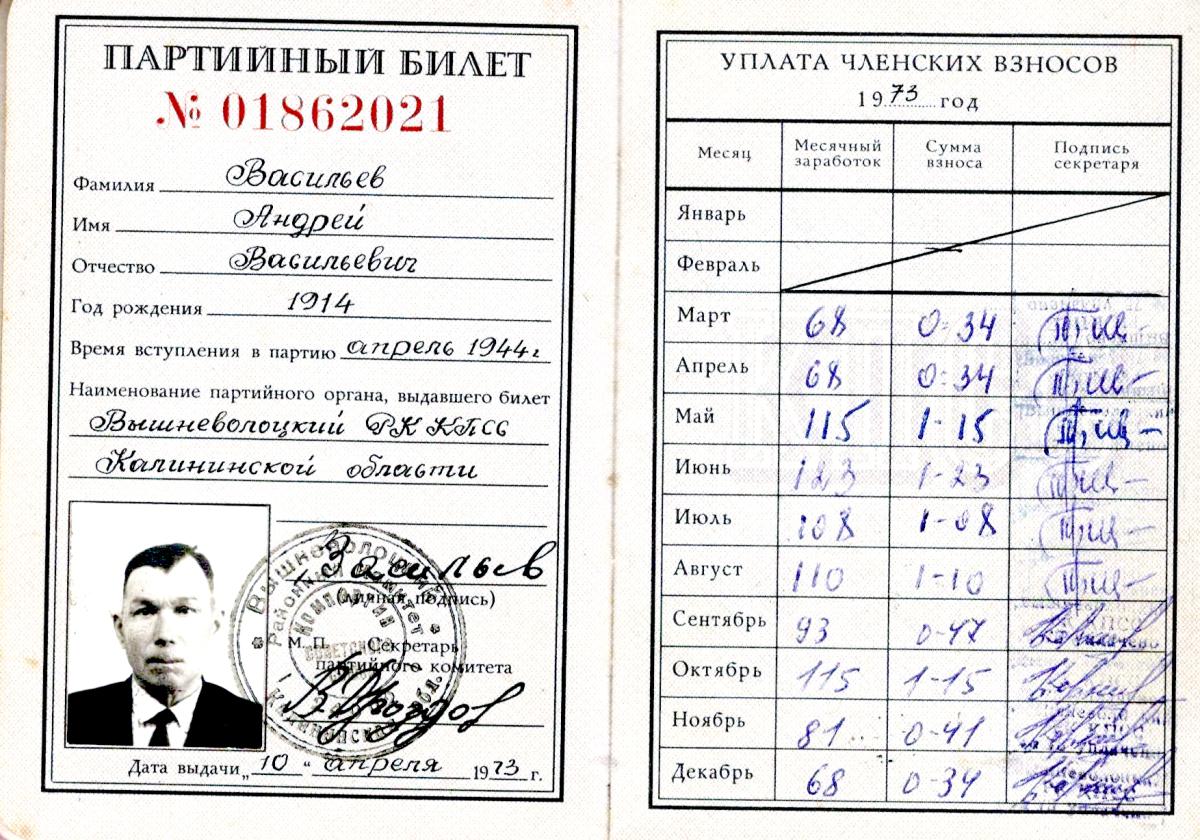 ПАРТИЙНЫЙ БИЛЕТ
№ 01862021
Фамилия Васильев
Имя Андрей
Отчество Васильевич
Год рождения 1914
Время вступления в партию апрель 1944 г
Наименование партийного органа, выдавшего билет
Вышневолоцкий РК КПСС
Калининской области
Васильев
(личная подпись)
М. П. Секретарь
партийного комитета
Дата выдачи „10“ апреля 1973 г.
УПЛАТА ЧЛЕНСКИХ ВЗНОСОВ
1973 год
Месяц Месячный заработок Сумма взноса Подпись секретаря
Январь
Февраль
Март 68 0-34
Апрель 68 0-34
Май 115 1-15
Июнь 123 1-23
Июль 108 1-08
Август 110 1-10
Сентябрь 93 0-47
Октябрь 115 1-15
Ноябрь 81 0-41
Декабрь 68 0-34